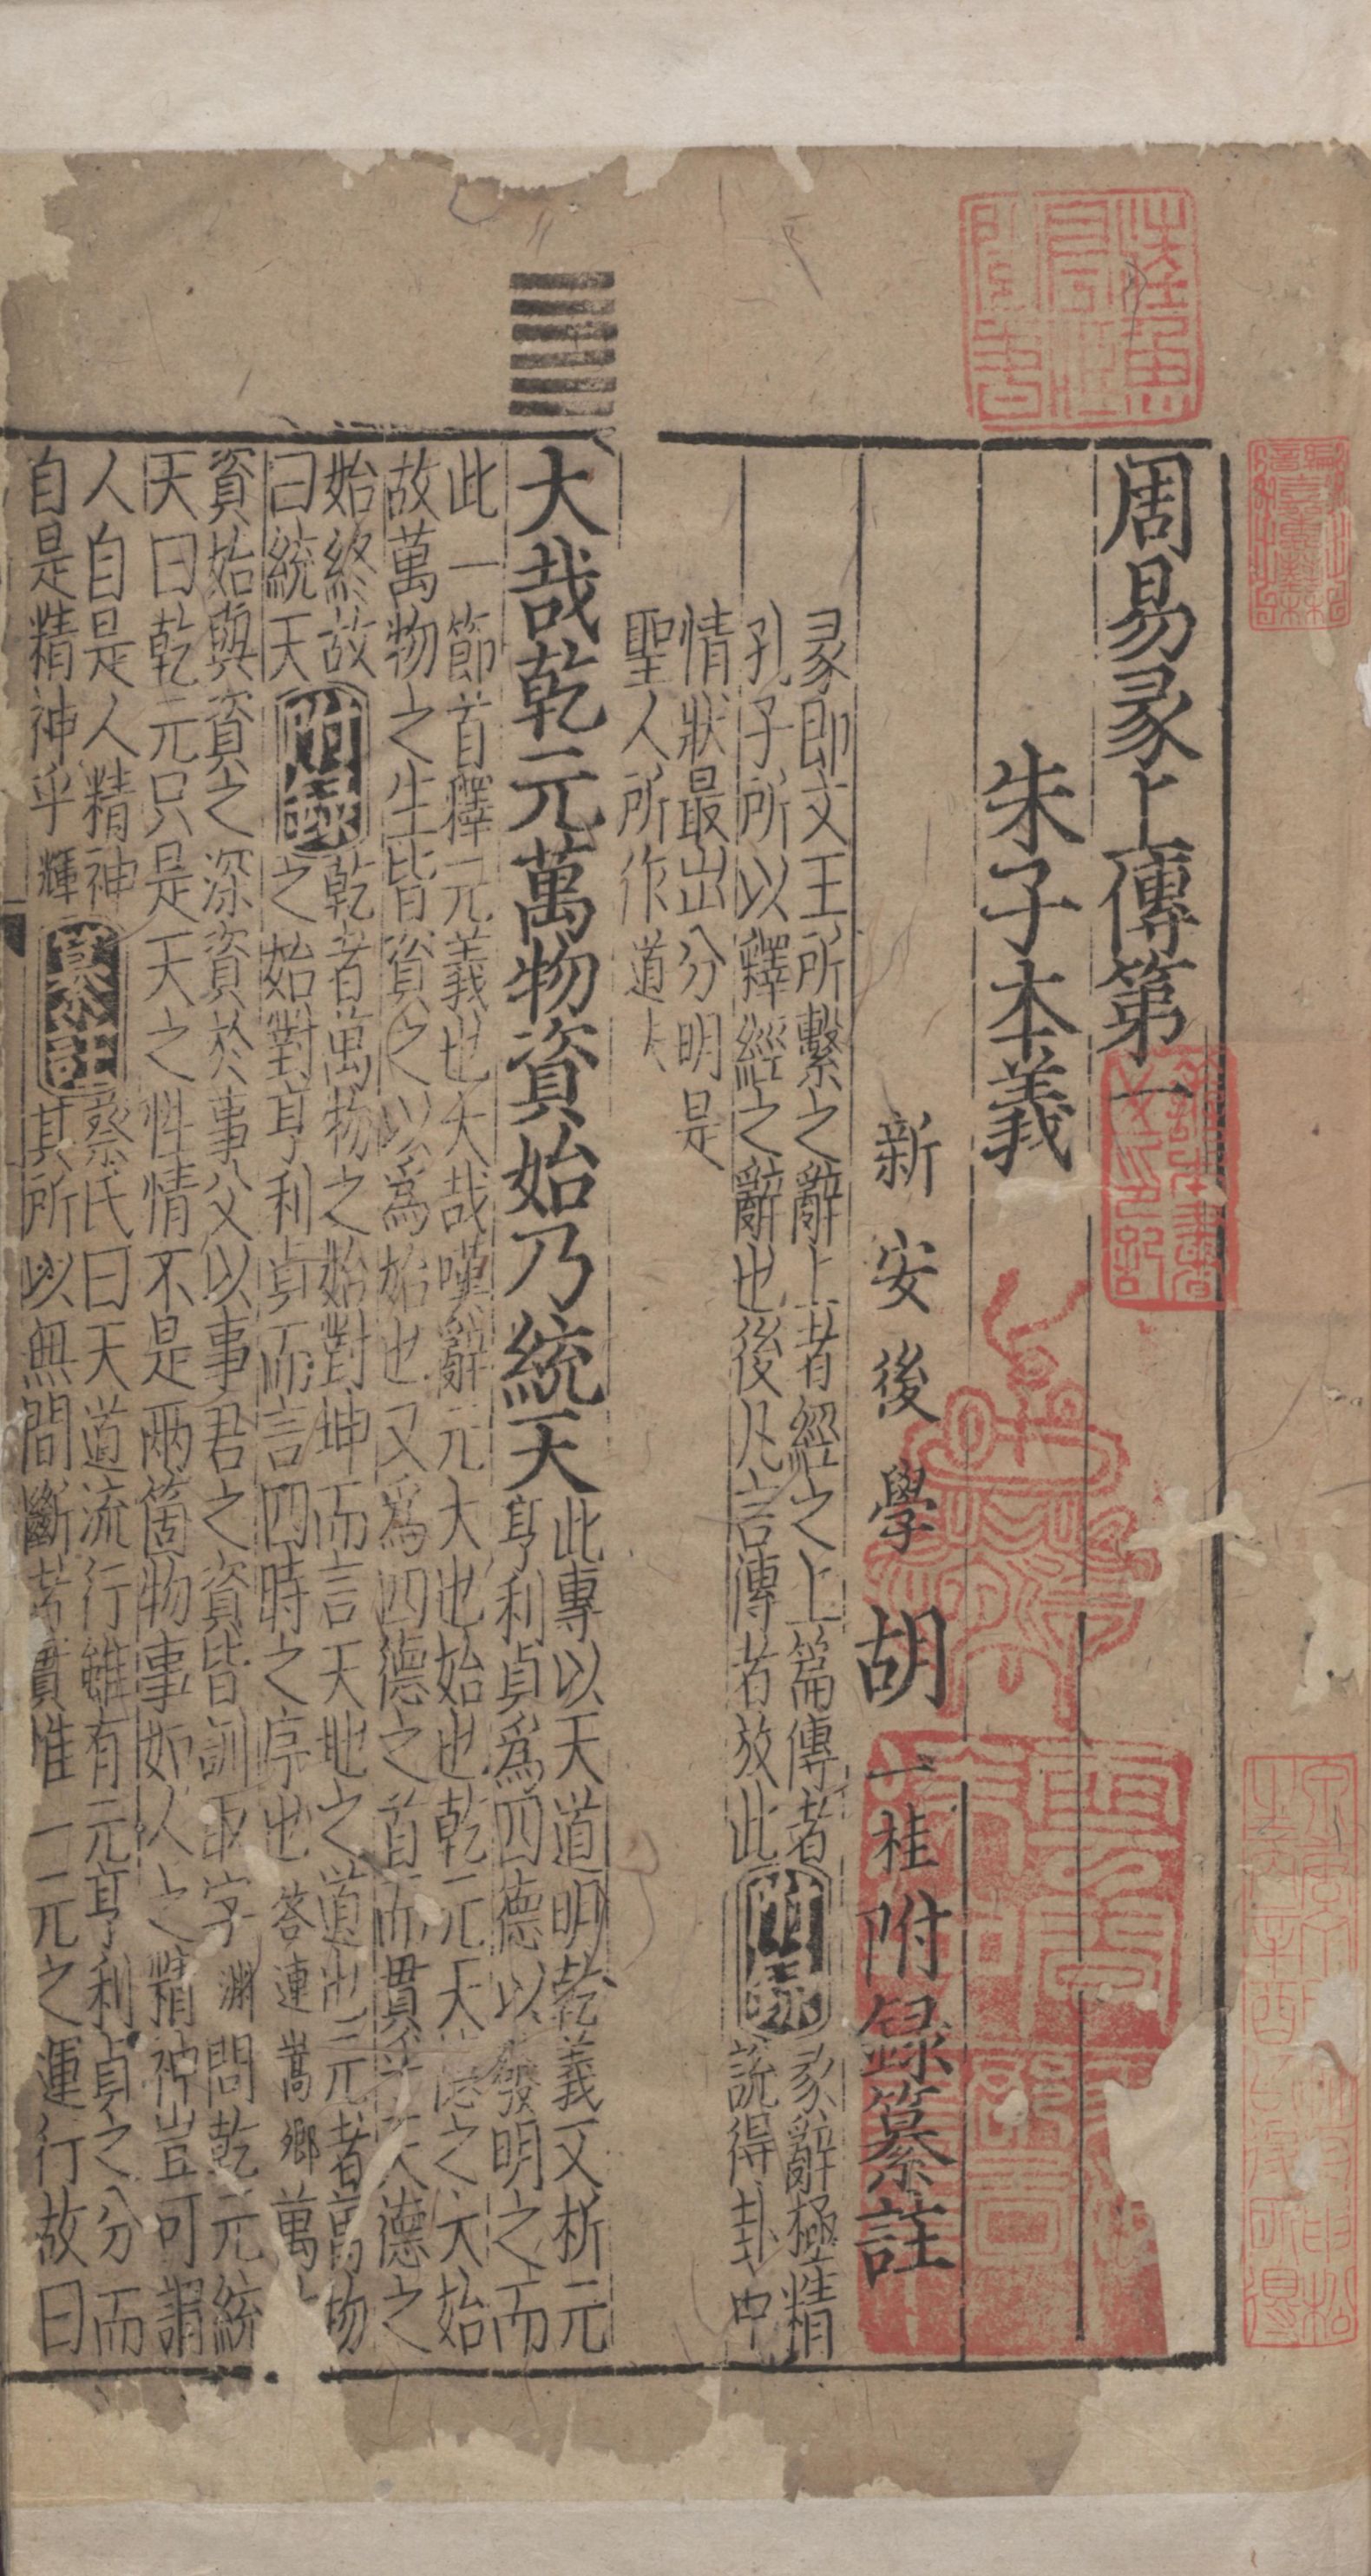 周易彖上傳第一
朱子本義
新安後學胡一桂附録纂註
彖即文王所繫之辭上者經之上篇傳者
孔子所以釋經之辭也後凡言傳者放此附録彖辭極精
説得卦中
情狀最出分明是
聖人所作道夫
大哉乾元萬物資始乃統天此專以天道明乾義又析元
亨利貞爲四德以發明之而
此一節首釋元義也大哉嘆辭元大也始也乾元天德之大始
故萬物之生皆資之以爲始也又爲四德之首而貫乎天德之
始終故
曰統天附録乾者萬物之始對坤而言天地之道也元者萬物
之始對亨利貞而言四時之序也答連嵩卿萬
資始與資之深資於事父以事君之資皆訓取字淵問乾元統
天曰乾元只是天之性情不是兩箇物事如人之精神豈可謂
人自是人精神
自是精神乎輝纂註蔡氏曰天道流行雖有元亨利貞之分而
其所以無間斷者實惟一元之運行故曰